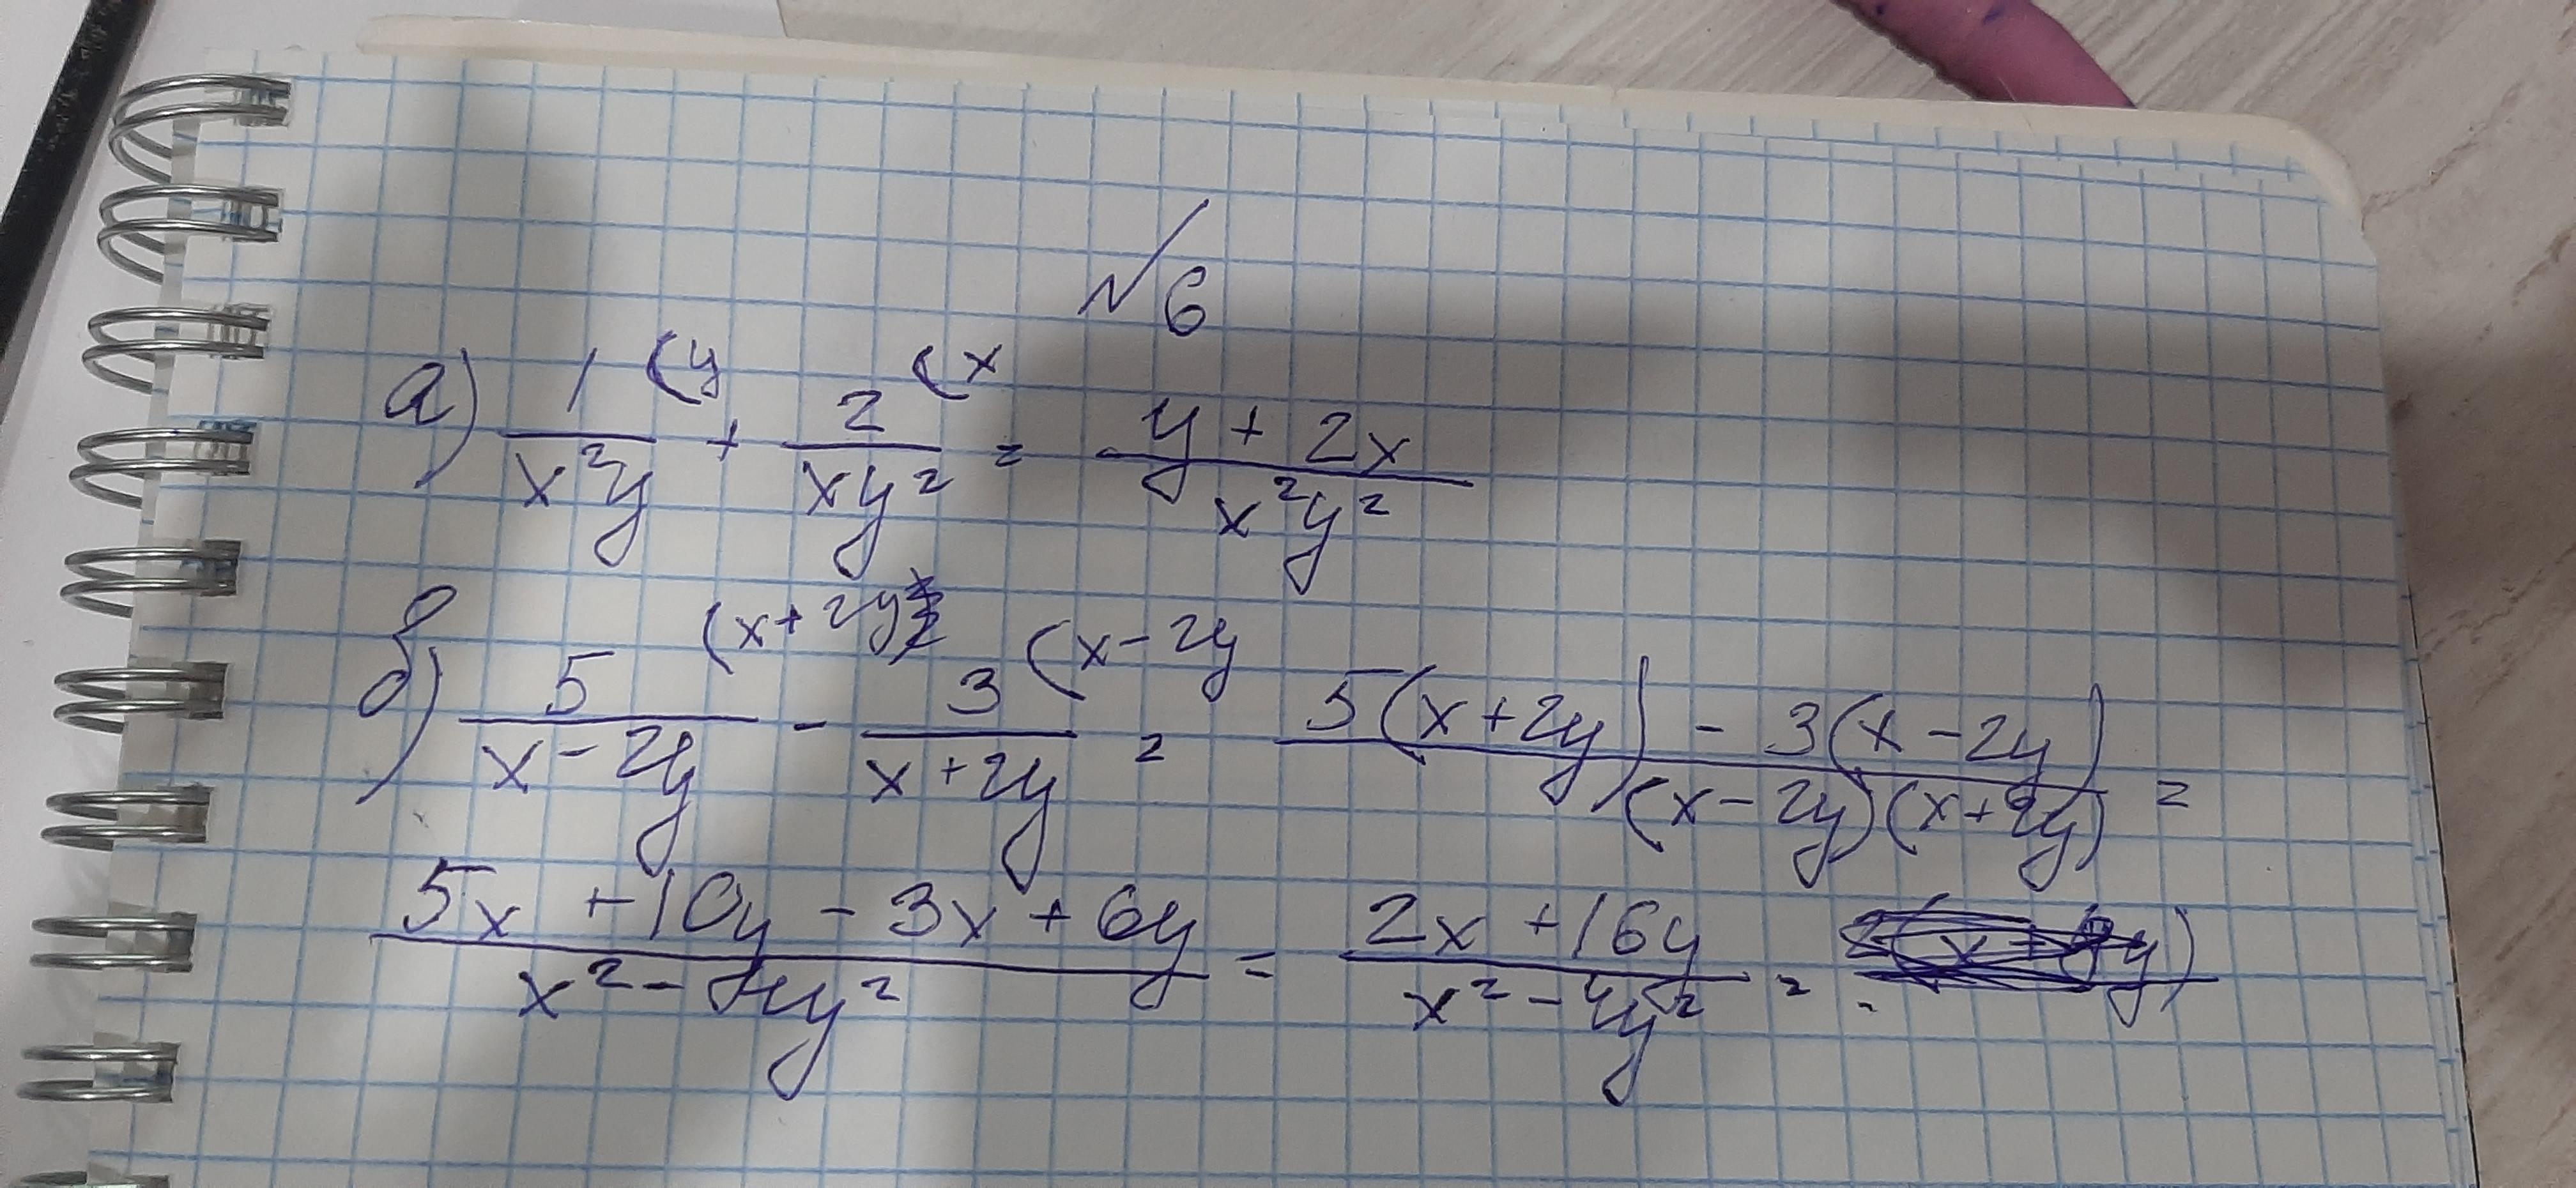 №6
а) 1/(x²y) (y + 2/(xy²) (x = (y + 2x)/(x²y²)
б) 5/(x - 2y) (x + 2y - 3/(x + 2y) (x - 2y = (5(x + 2y) - 3(x - 2y))/((x - 2y)(x + 2y)) =
(5x + 10y - 3x + 6y)/(x² - 4y²) = (2x + 16y)/(x² - 4y²) =